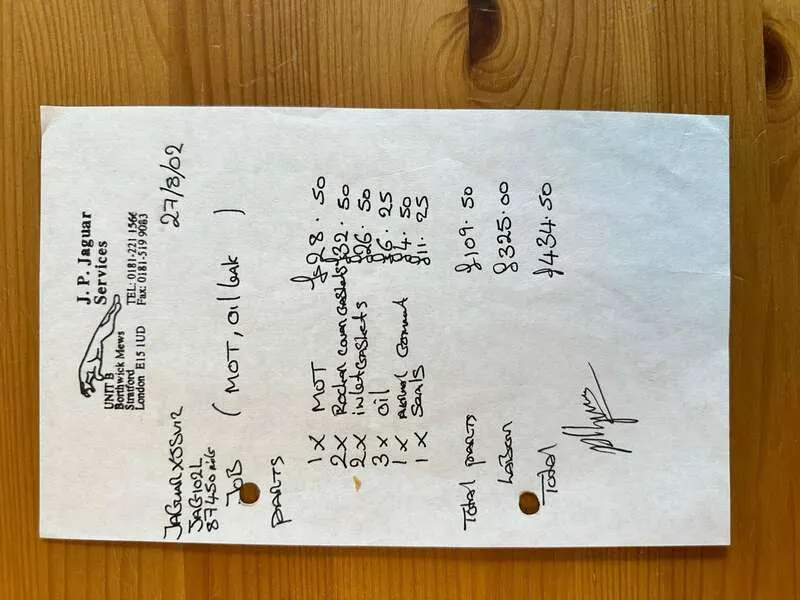 J. P. Jaguar
Services
UNIT B
Borthwick Mews
Stratford
London E15 1UD
TEL: 0181-221 1566
Fax: 0181-519 9083
27/8/02
JAGUAR XJSV12
JAG102L
87450 mls
JOB ( MOT, OIL leak )
PARTS
1 X MOT £28.50
2 X Rocker cover gaskets £32.50
2 X inlet gaskets £26.50
3 X oil £6.25
1 X £4.50
1 X Seals £11.25
Total parts £109.50
Labour £325.00
Total £434.50